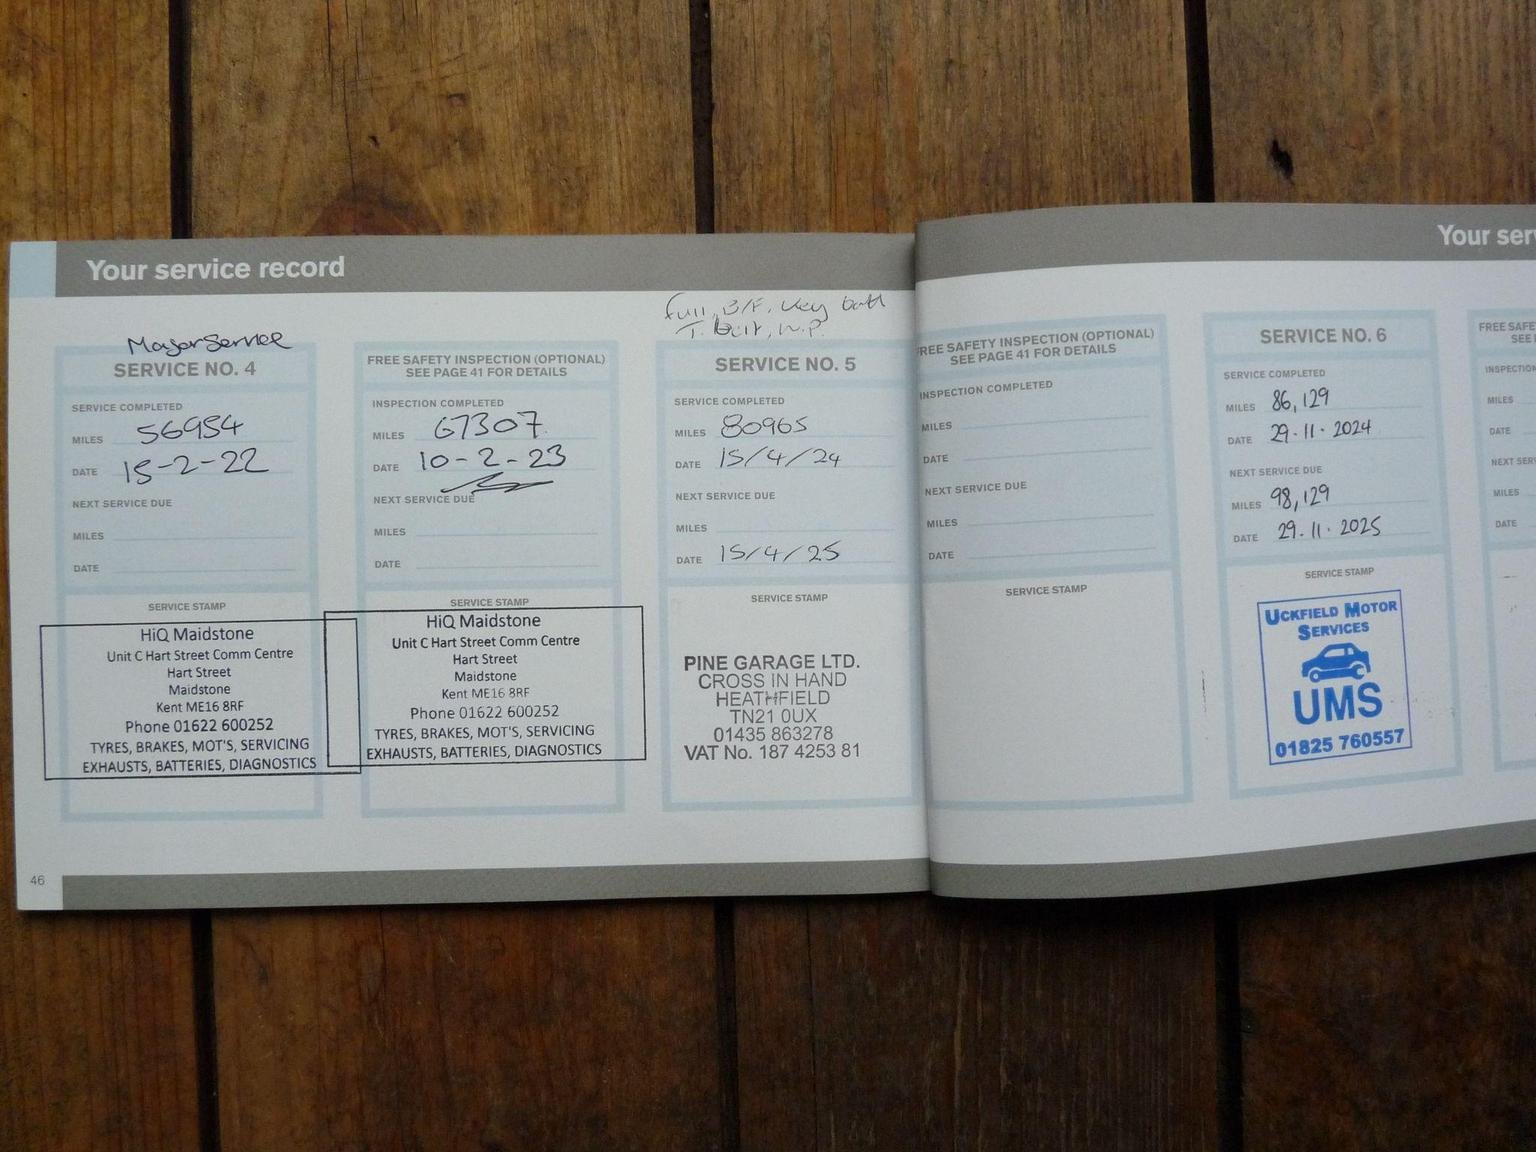 Your service record
Major Service
SERVICE NO. 4
SERVICE COMPLETED
MILES 56954
DATE 15-2-22
NEXT SERVICE DUE
MILES
DATE
SERVICE STAMP
HiQ Maidstone
Unit C Hart Street Comm Centre
Hart Street
Maidstone
Kent ME16 8RF
Phone 01622 600252
TYRES, BRAKES, MOT'S, SERVICING
EXHAUSTS, BATTERIES, DIAGNOSTICS
FREE SAFETY INSPECTION (OPTIONAL)
SEE PAGE 41 FOR DETAILS
INSPECTION COMPLETED
MILES 67307
DATE 10-2-23
NEXT SERVICE DUE
MILES
DATE
SERVICE STAMP
HiQ Maidstone
Unit C Hart Street Comm Centre
Hart Street
Maidstone
Kent ME16 8RF
Phone 01622 600252
TYRES, BRAKES, MOT'S, SERVICING
EXHAUSTS, BATTERIES, DIAGNOSTICS
Full, B/F, Key batt
T. Belt, W.P.
SERVICE NO. 5
SERVICE COMPLETED
MILES 80965
DATE 15/4/24
NEXT SERVICE DUE
MILES
DATE 15/4/25
SERVICE STAMP
PINE GARAGE LTD.
CROSS IN HAND
HEATHFIELD
TN21 0UX
01435 863278
VAT No. 187 4253 81
46
Your ser
FREE SAFETY INSPECTION (OPTIONAL)
SEE PAGE 41 FOR DETAILS
INSPECTION COMPLETED
MILES
DATE
NEXT SERVICE DUE
MILES
DATE
SERVICE STAMP
SERVICE NO. 6
SERVICE COMPLETED
MILES 86,129
DATE 29.11.2024
NEXT SERVICE DUE
MILES 98,129
DATE 29.11.2025
SERVICE STAMP
UCKFIELD MOTOR
SERVICES
UMS
01825 760557
FREE SAFE
SEE
INSPECTION
MILES
DATE
NEXT SERV
MILES
DATE